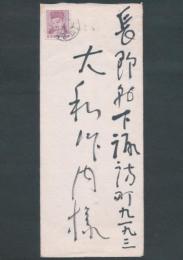 長野縣下諏訪町九一九三
大和作内様